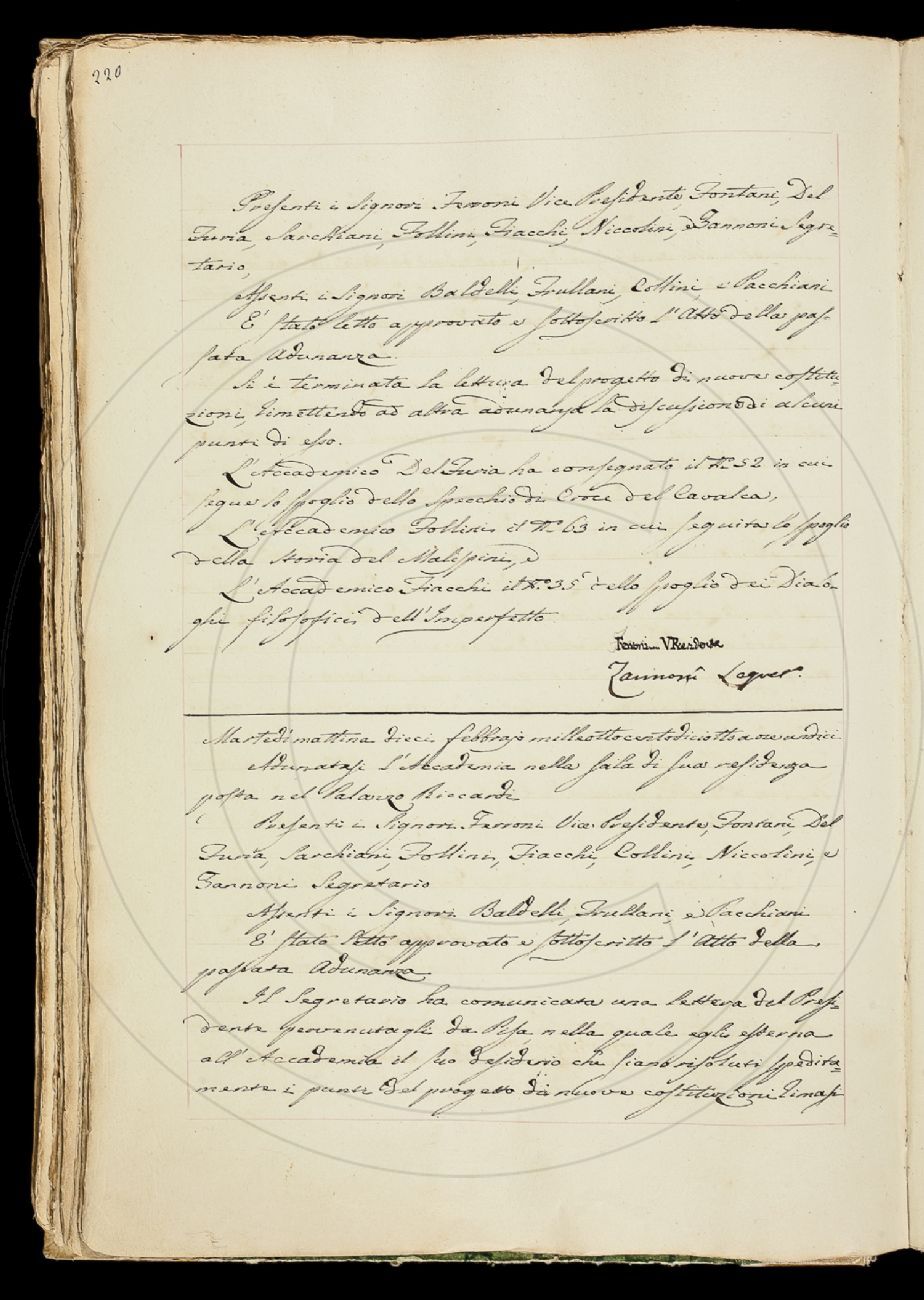 220
Presenti i Signori Ferroni Vice Presidente, Fontani, Del
Furia, Sarchiani, Follini, Fiacchi, Niccolini, e Zannoni Segre=
tario,
Assenti i Signori Baldelli, Frullani, Collini, e Pacchiani
E' stato letto approvato e sottoscritto l'Atto della pas-
sata Adunanza.
Si è terminata la lettura del progetto di nuove costitu-
zioni, rimettendo ad altra adunanza la discussione di alcuni
punti di esso.
L'Accademico Del Furia ha consegnato il N.º 52 in cui
segue lo spoglio dello Specchio di Croce del Cavalca,
L'Accademico Follini il N.º 63 in cui seguita lo spoglio
della Storia del Malispini, e
L'Accademico Fiacchi il N.º 35 dello spoglio dei Dialo-
ghi filosofici dell'Imperfetto
Ferroni V. Presidente
Zannoni Segret.º
Martedì mattina dieci febbrajo milleottocentodiciotto a ore undici
Adunatasi l'Accademia nella sala di sua residenza
posta nel Palazzo Riccardi
Presenti i Signori Ferroni Vice Presidente, Fontani, Del
Furia, Sarchiani, Follini, Fiacchi, Collini, Niccolini, e
Zannoni Segretario
Assenti i Signori Baldelli, Frullani, e Pacchiani
E' stato letto approvato e sottoscritto l'Atto della
passata Adunanza
Il Segretario ha comunicata una lettera del Presi=
dente pervenutagli da Pisa, nella quale egli esterna
all'Accademia il suo desiderio che siano risoluti spedita-
mente i punti del progetto di nuove costituzioni rimasi